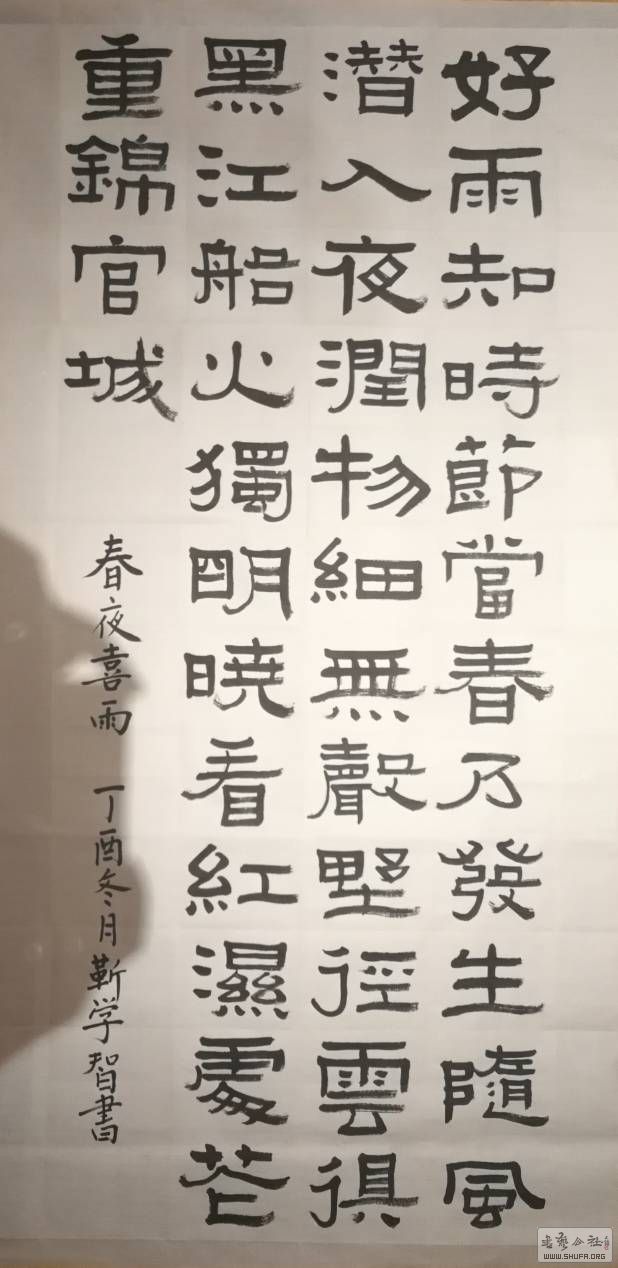 好雨知時節當春乃發生隨風
潜入夜潤物細無聲野徑雲俱
黑江船火獨明曉看紅濕處花
重錦官城
春夜喜雨 丁酉冬月靳学智書
书艺公社
WWW.SHUFA.ORG